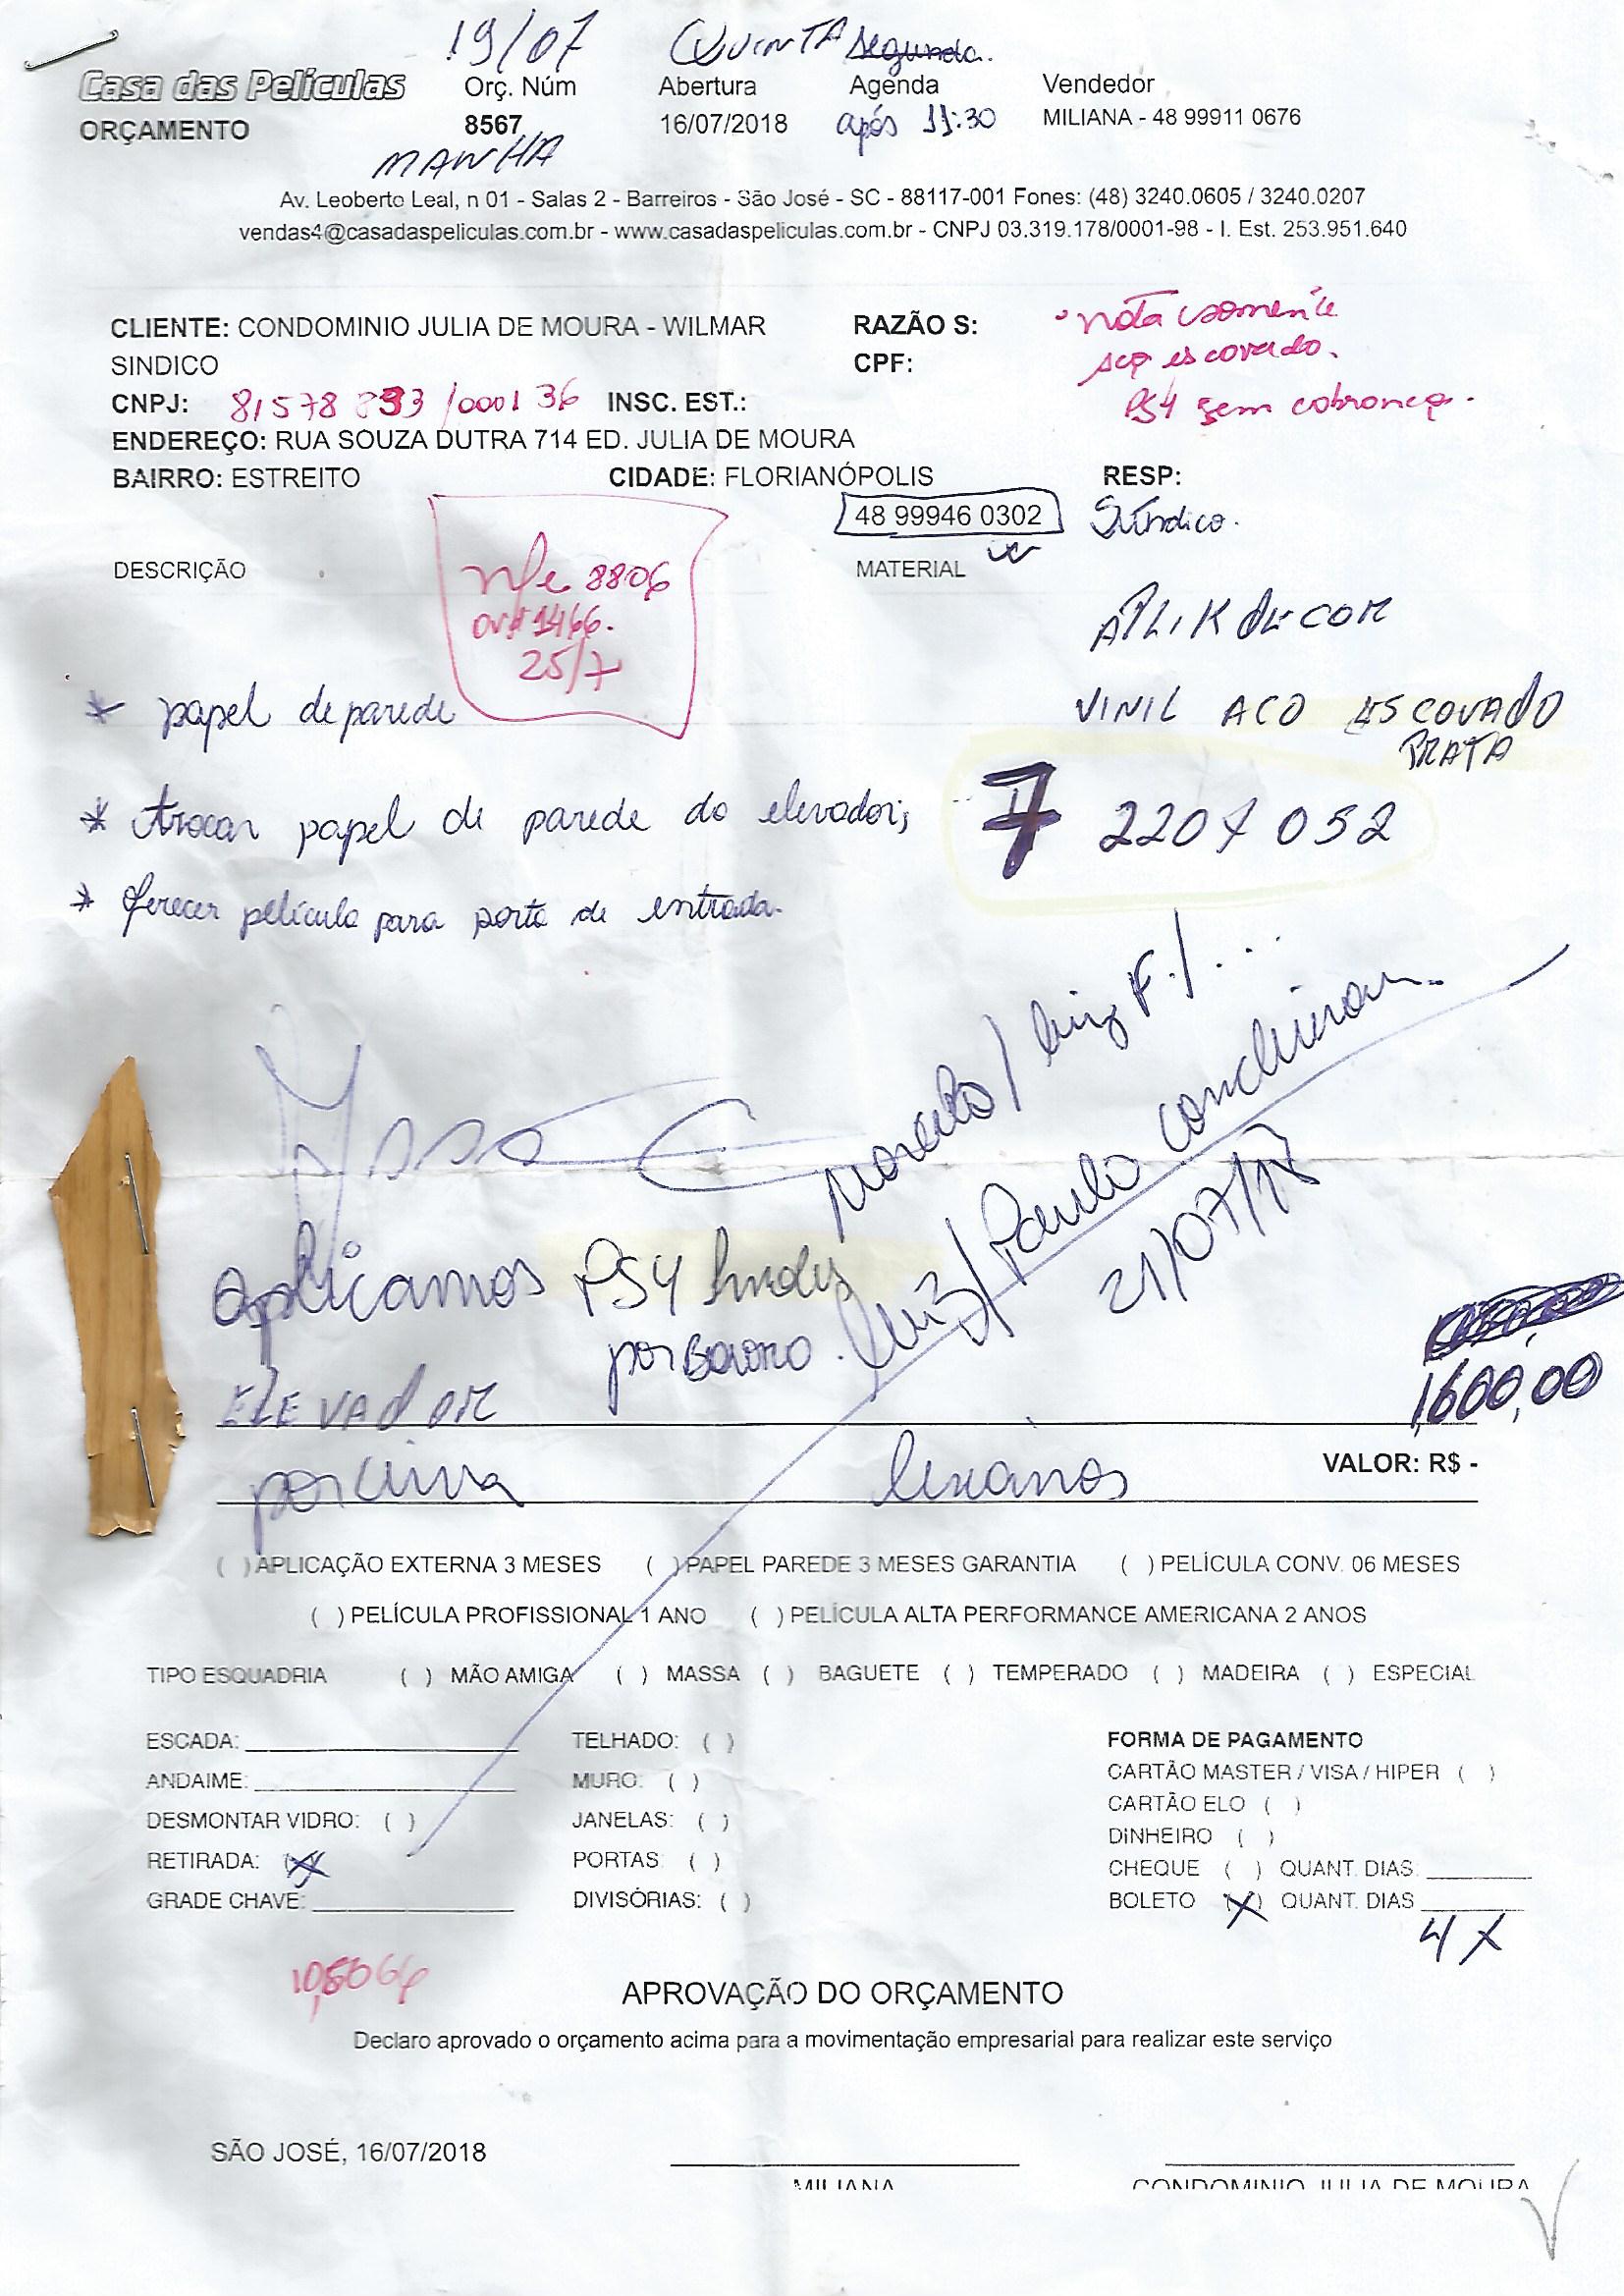 19/07 QUINTA segunda.
Casa das Películas Orç. Núm Abertura Agenda Vendedor
ORÇAMENTO 8567 16/07/2018 após 11:30 MILIANA - 48 99911 0676
MANHA
Av. Leoberto Leal, n 01 - Salas 2 - Barreiros - São José - SC - 88117-001 Fones: (48) 3240.0605 / 3240.0207
vendas4@casadaspeliculas.com.br - www.casadaspeliculas.com.br - CNPJ 03.319.178/0001-98 - I. Est. 253.951.640
CLIENTE: CONDOMINIO JULIA DE MOURA - WILMAR RAZÃO S: nota somente
SINDICO CPF: aço escovado.
CNPJ: 81578 893/0001 36 INSC. EST.: PS4 sem cobrança.
ENDEREÇO: RUA SOUZA DUTRA 714 ED. JULIA DE MOURA
BAIRRO: ESTREITO CIDADE: FLORIANÓPOLIS RESP:
48 99946 0302 Síndico.
DESCRIÇÃO nfe 8806 MATERIAL
1466.
25/7
APLIK DECOR
* papel de parede VINIL ACO ESCOVADO
PRATA
* trocar papel de parede do elevador; 7 2207 052
* oferecer película para porta de entrada.
Marcelo / luiz F. / ...
luiz / Paulo concluiram..
21/07/18
aplicamos PS4
por baixo.
1600,00
ELEVADOR
por cima lixamos
VALOR: R$ -
( ) APLICAÇÃO EXTERNA 3 MESES ( ) PAPEL PAREDE 3 MESES GARANTIA ( ) PELÍCULA CONV. 06 MESES
( ) PELÍCULA PROFISSIONAL 1 ANO ( ) PELÍCULA ALTA PERFORMANCE AMERICANA 2 ANOS
TIPO ESQUADRIA ( ) MÃO AMIGA ( ) MASSA ( ) BAGUETE ( ) TEMPERADO ( ) MADEIRA ( ) ESPECIAL
ESCADA: TELHADO: ( ) FORMA DE PAGAMENTO
ANDAIME: MURO: ( ) CARTÃO MASTER / VISA / HIPER ( )
DESMONTAR VIDRO: ( ) JANELAS: ( ) CARTÃO ELO ( )
DINHEIRO ( )
RETIRADA: (X) PORTAS ( ) CHEQUE ( ) QUANT. DIAS:
GRADE CHAVE: DIVISÓRIAS: ( ) BOLETO (X) QUANT. DIAS
4 X
APROVAÇÃO DO ORÇAMENTO
Declaro aprovado o orçamento acima para a movimentação empresarial para realizar este serviço
SÃO JOSÉ, 16/07/2018
MILIANA CONDOMINIO JULIA DE MOURA